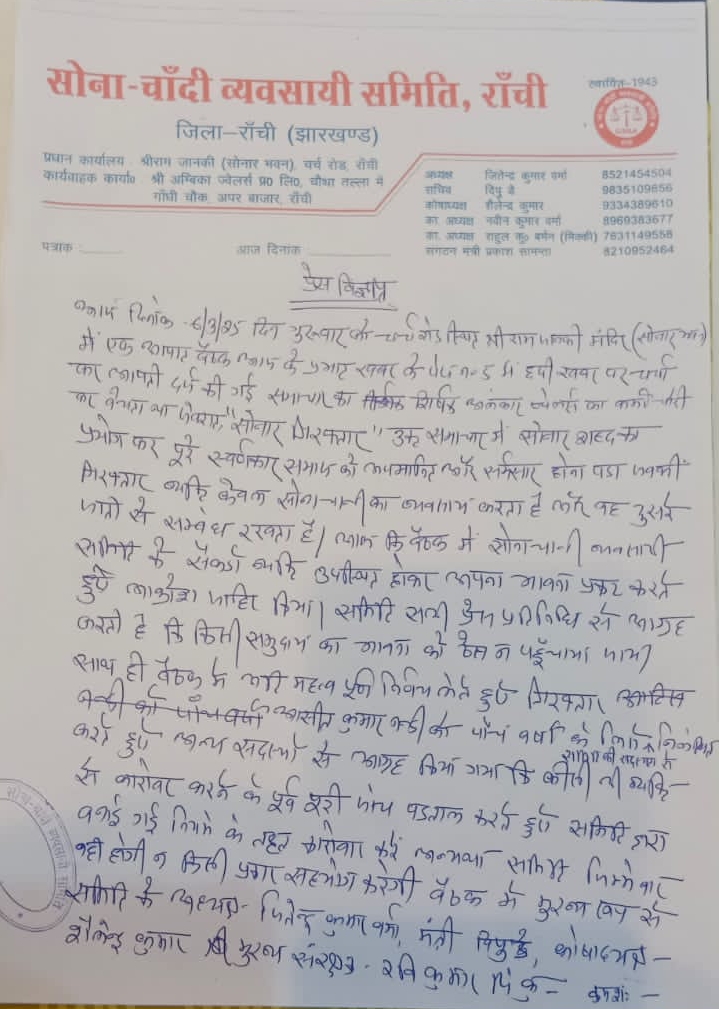 सोना-चाँदी व्यवसायी समिति, राँची
स्थापित-1943
जिला-राँची (झारखण्ड)
प्रधान कार्यालय : श्रीराम जानकी (सोनार भवन), चर्च रोड, राँची
कार्यवाहक कार्या० : श्री अम्बिका ज्वेलर्स प्रा० लि०, चौथा तल्ला में
गाँधी चौक, अपर बाजार, राँची
अध्यक्ष जितेन्द्र कुमार वर्मा 8521454504
सचिव दिपु दे 9835109656
कोषाध्यक्ष शैलेन्द्र कुमार 9334389610
का. अध्यक्ष नवीन कुमार वर्मा 8969383677
का. अध्यक्ष राहुल कु० बर्मन (मिक्की) 7631149558
संगठन मंत्री प्रकाश सामन्ता 8210952464
पत्रांक :
आज दिनांक
प्रेस विज्ञप्ति
आज दिनांक - 6/3/25 दिन गुरुवार को चर्च रोड स्थित श्री राम जानकी मंदिर (सोनार भवन)
में एक आपात बैठक आज के प्रभात खबर के पेज न०-5 में छपी खबर पर चर्चा
कर आपत्ती दर्ज की गई समाचार का शिर्षक अलंकार ज्वेलर्स का कर्मी चोरी
का बेचता था जेवरात, "सोनार गिरफ्तार" उक्त समाचार में सोनार शब्द का
प्रयोग कर पूरे स्वर्णकार समाज को अपमानित और सर्मसार होना पडा जबकी
गिरफ्तार व्यक्ति केवल सोना-चान्दी का व्यवसाय करता है और वह दुसरे
जाती से सम्बंध रखता है। आज कि बैठक में सोना चान्दी व्यवसायी
समिति के सैकडो व्यक्ति उपस्थित होकर अपना भावना प्रकट करते
हुए आक्रोश जाहिर किया। समिति सभी प्रेस प्रतिनिधि से आग्रह
करती है कि किसी समुदाय का भावना को ठेस न पहुँचाया जाय।
साथ ही बैठक में अति महत्व पूर्ण निर्णय लेते हुए गिरफ्तार
आसीत कुमार नन्दी को पाँच वर्षो के लिये निलंबित
करते हुए अन्य सदस्यों से आग्रह किया गया कि कीसी भी व्यक्ति
से कारोबार करने के पूर्व पूरी जांच पडताल करते हुए समिति द्वारा
बनाई गई नियम के तहत कारोबार करें अन्यथा समिति जिम्मेवार
नही होगी न किसी प्रकार सहयोग करेगी बैठक में मुख्य रूप से
समिति के अध्यक्ष- जितेन्द्र कुमार वर्मा, मंत्री दिपु दे, कोषाध्यक्ष -
शैलेन्द्र कुमार मुख्य संरक्षक - रवि कुमार पिंकु - क्रमशः -